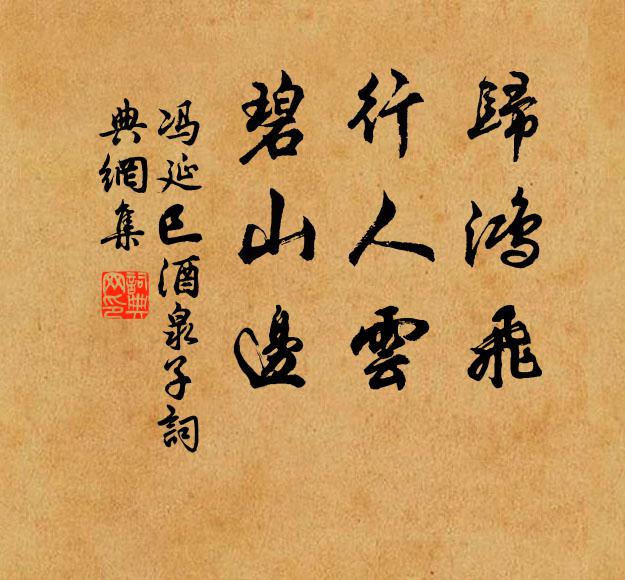 歸鴻飛
行人雲
碧山邊
冯延巳酒泉子詞
典網集
詞典
网印